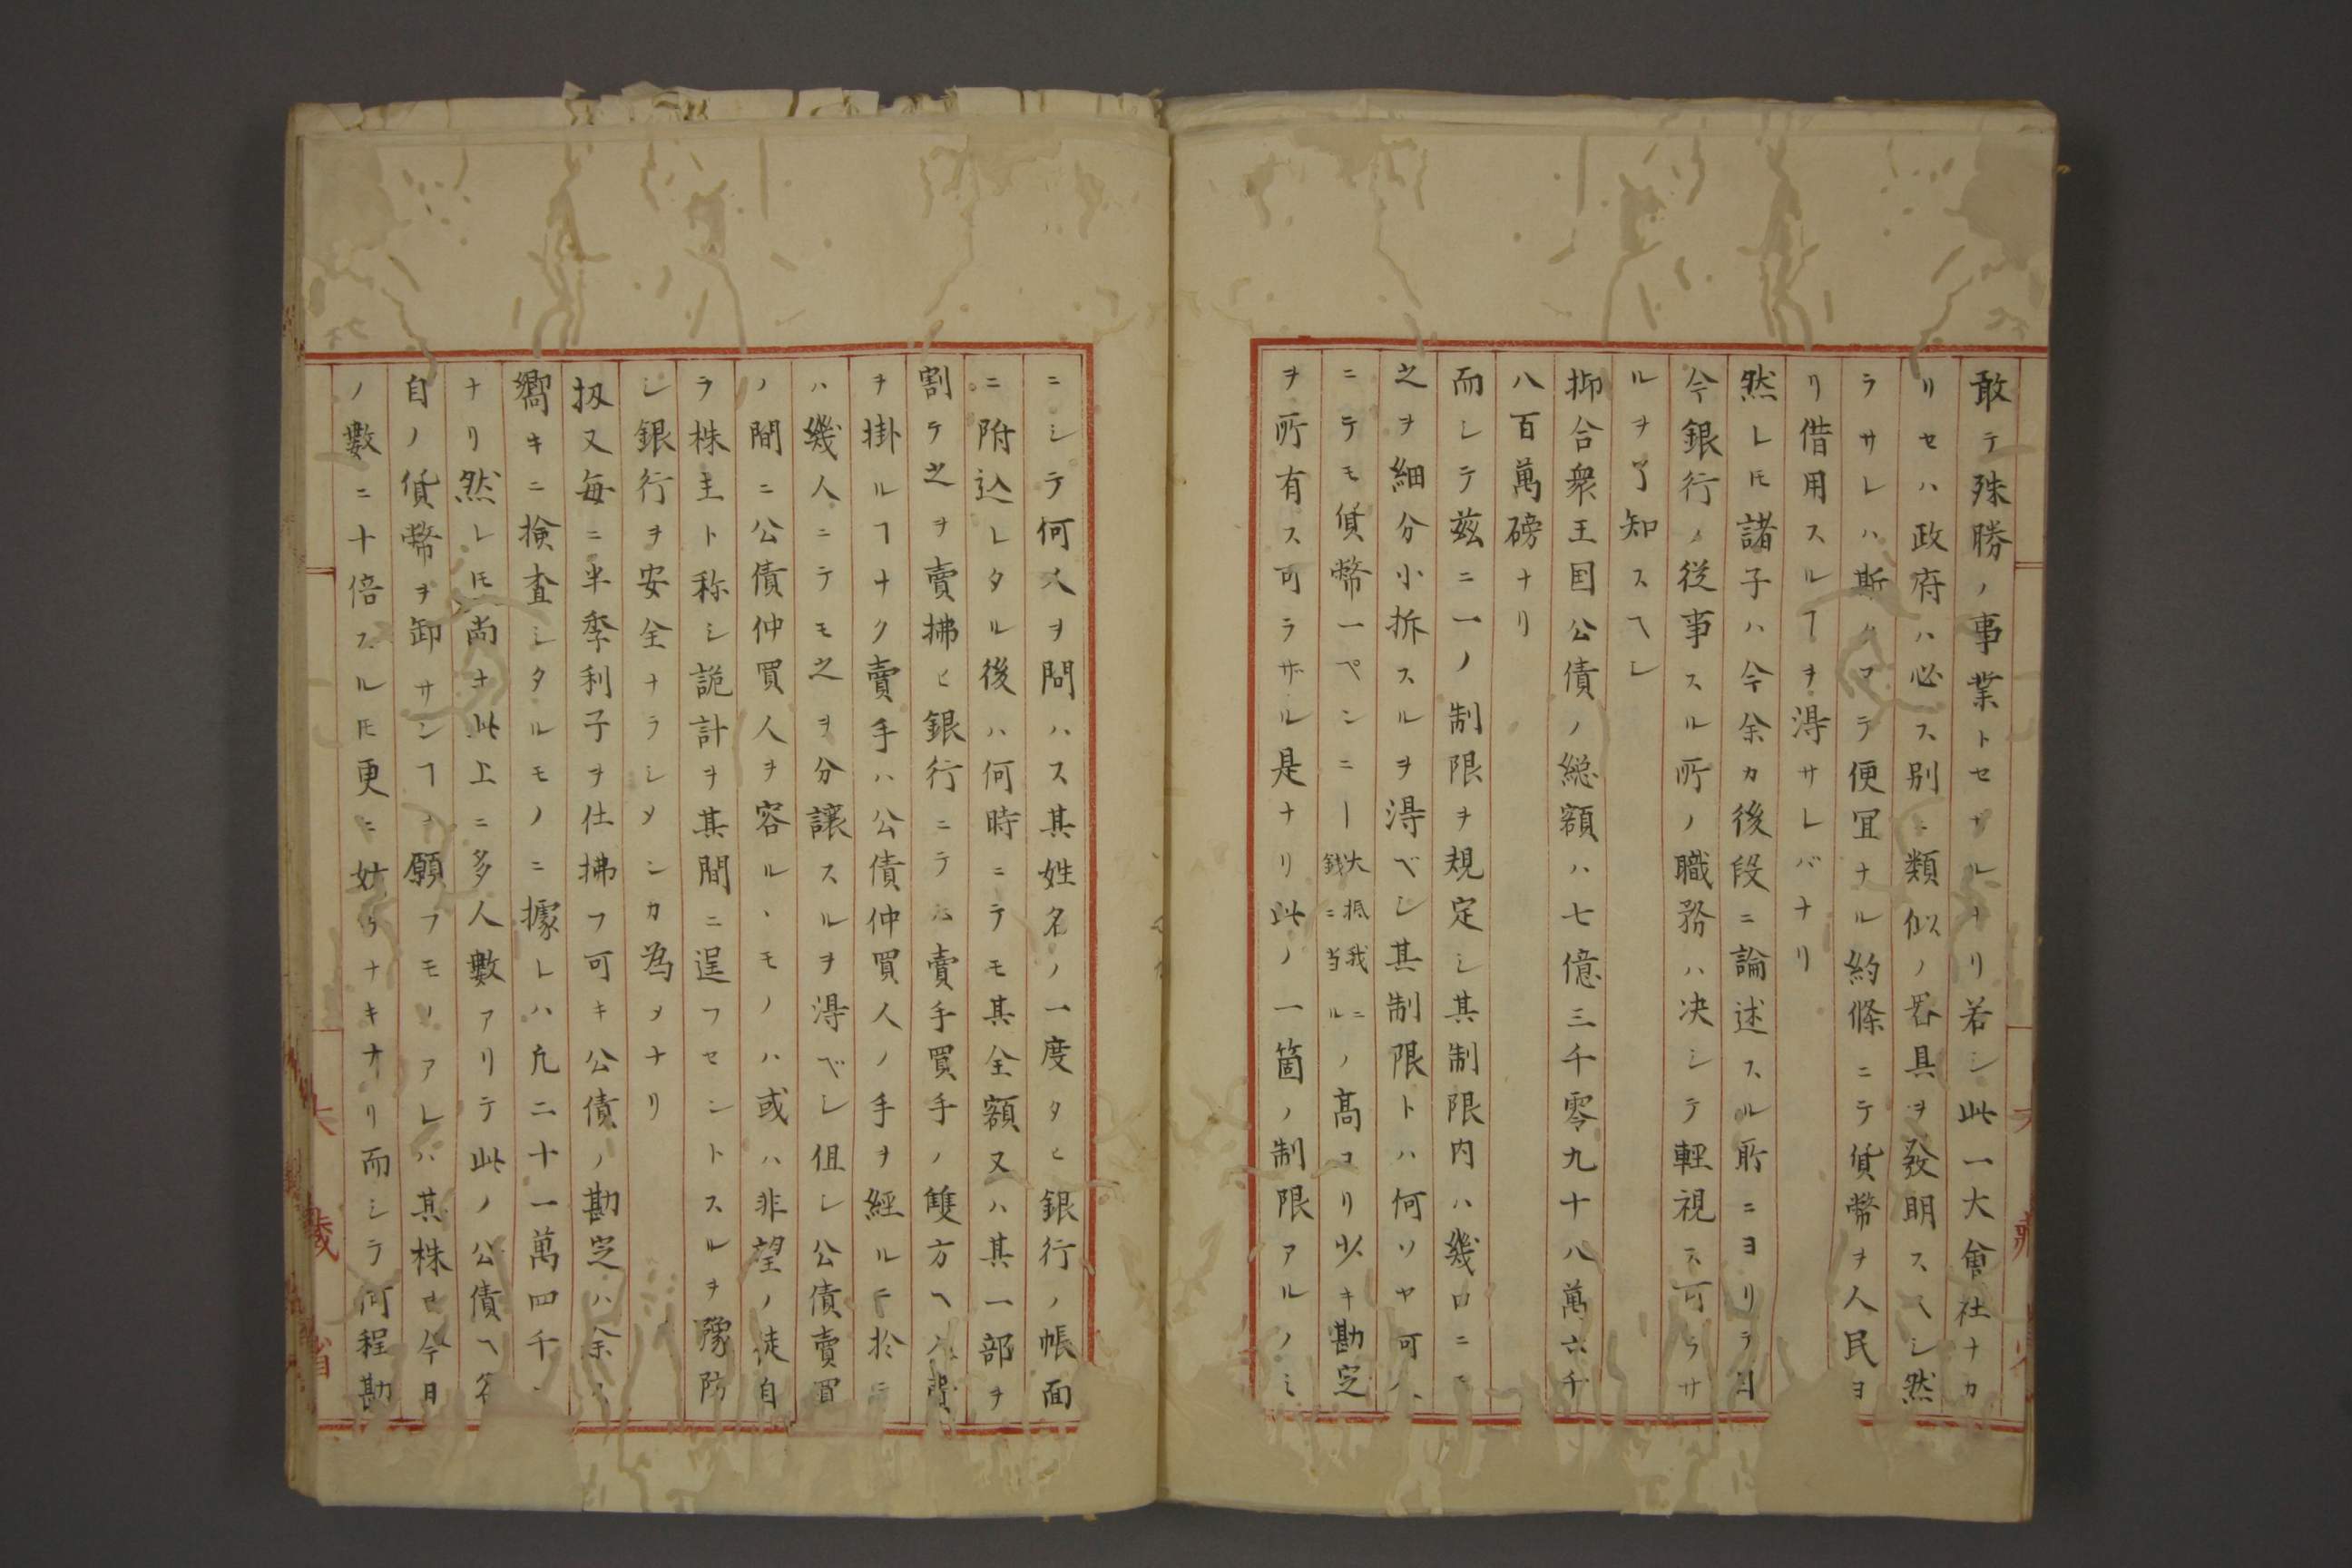 敢テ殊勝ノ事業トセザルナリ若シ此一大會社ナカ
リセハ政府ハ必ス別ニ類似ノ器具ヲ發明スヘシ然
ラサレハ斯クマテ便宜ナル約條ニテ貨幣ヲ人民ヨ
リ借用スルヿヲ得サレバナリ
然レ𪜈諸子ハ今余カ後段ニ論述スル所ニヨリテ目
今銀行ノ從事スル所ノ職務ハ决シテ輕視ス可ラサ
ルヲ了知スヘシ
抑合衆王国公債ノ総額ハ七億三千零九十八萬六千
八百萬磅ナリ
而シテ玆ニ一ノ制限ヲ規定シ其制限内ハ幾口ニモ
之ヲ細分小拆スルヲ得ベシ其制限トハ何ソヤ可ハ
ニテモ貨幣一ペンニー大抵我ニ銭ニ当ルノ高ヨリ少キ勘定
ヲ所有ス可ラザル是ナリ此ノ一箇ノ制限アルノミ
ニシテ何人ヲ問ハス其姓名ノ一度タヒ銀行ノ帳面
ニ附込レタル後ハ何時ニテモ其全額又ハ其一部ヲ
割テ之ヲ賣拂ヒ銀行ニテハ賣手買手ノ雙方ヘ入費
ヲ掛ルヿナク賣手ハ公債仲買人ノ手ヲ經ルニ於テ
ハ幾人ニテモ之ヲ分讓スルヲ得ベシ但シ公債賣買
ノ間ニ公債仲買人ヲ容ルヽモノハ或ハ非望ノ徒自
ラ株主ト称シ詭計ヲ其間ニ逞フセントスルヲ豫防
シ銀行ヲ安全ナラシメンカ為メナリ
扱又毎ニ半季利子ヲ仕拂フ可キ公債ノ勘定ハ余ノ
嚮キニ撿査シタルモノニ據レハ凡二十一萬四千
ナリ然レ𪜈尚ホ此上ニ多人數アリテ此ノ公債ヘ各
自ノ貨幣ヲ卸サンヿヲ願フモノアレハ其株ヲ今日
ノ數ニ十倍スル𪜈更ニ妨ケナキナリ而シテ何程勘
大藏省